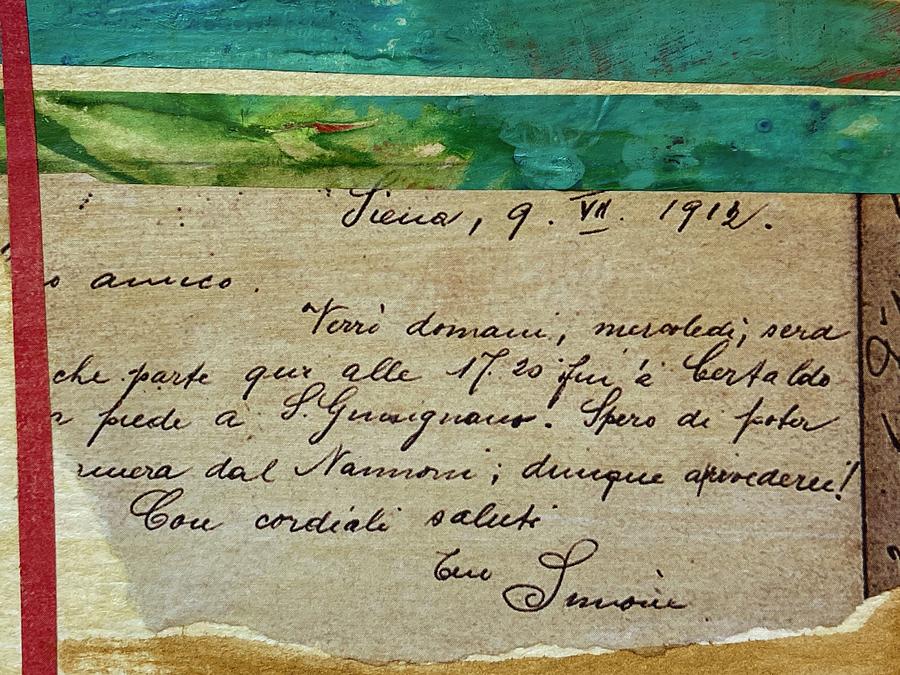 Siena, 9. VII. 1912.
o amico.
Verrò domani, mercoledì, sera
che parte qui alle 17.20 fin'a Certaldo
piede a S. Gimignano. Spero di poter
mera dal Nannoni; dunque arrivederci!
Con cordiali saluti
Tuo Simone